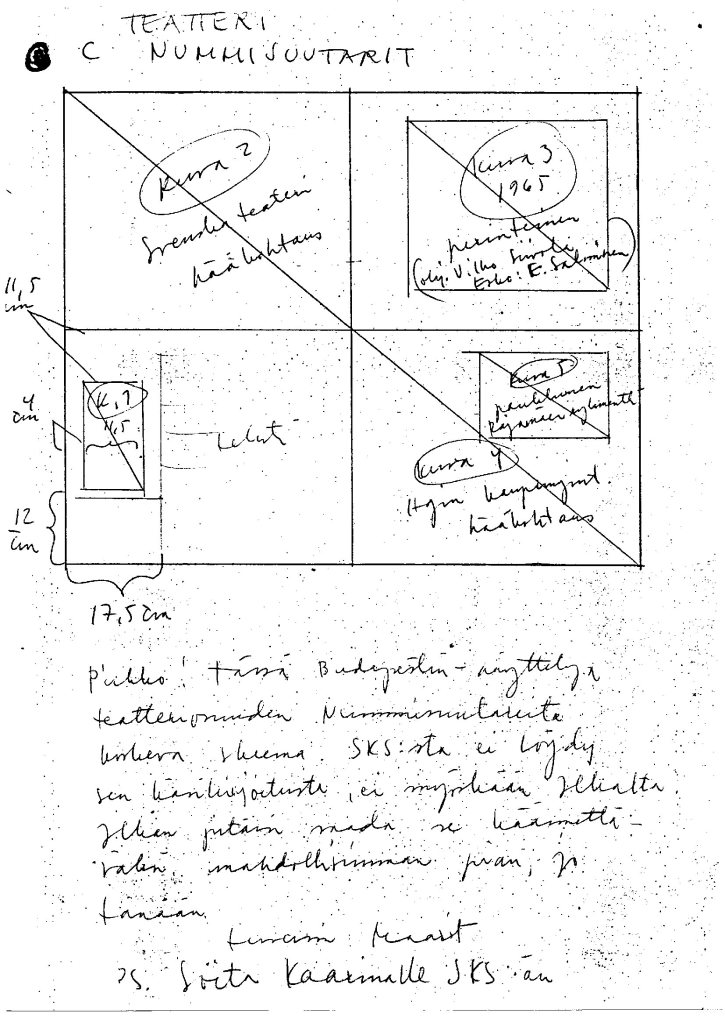 TEATTERI
C NUMMISUUTARIT
Kuva 2
Svenska teatern
hääkohtaus
Kuva 3
1965
perinteinen
(ohj. Vilho Siivola
Esko: E. Salminen)
11,5
cm
K. 1
11,5
4
cm
Kuva 5
Kuva 4
Hgin kaupungint.
hääkohtaus
12
cm
17,5 cm
Pirkko! Tässä Budapestin-näyttelyn
teatteriosuuden Nummisuutareita
koskeva skeema. SKS:stä ei löydy
sen käsikirjoitusta, ei myöskään Ilkalta.
Ilkan pitäisi saada se käännettä-
väksi mahdollisimman pian, jo
tänään.
Terveisin Maarit
PS. Soita Kaarinalle SKS:ään